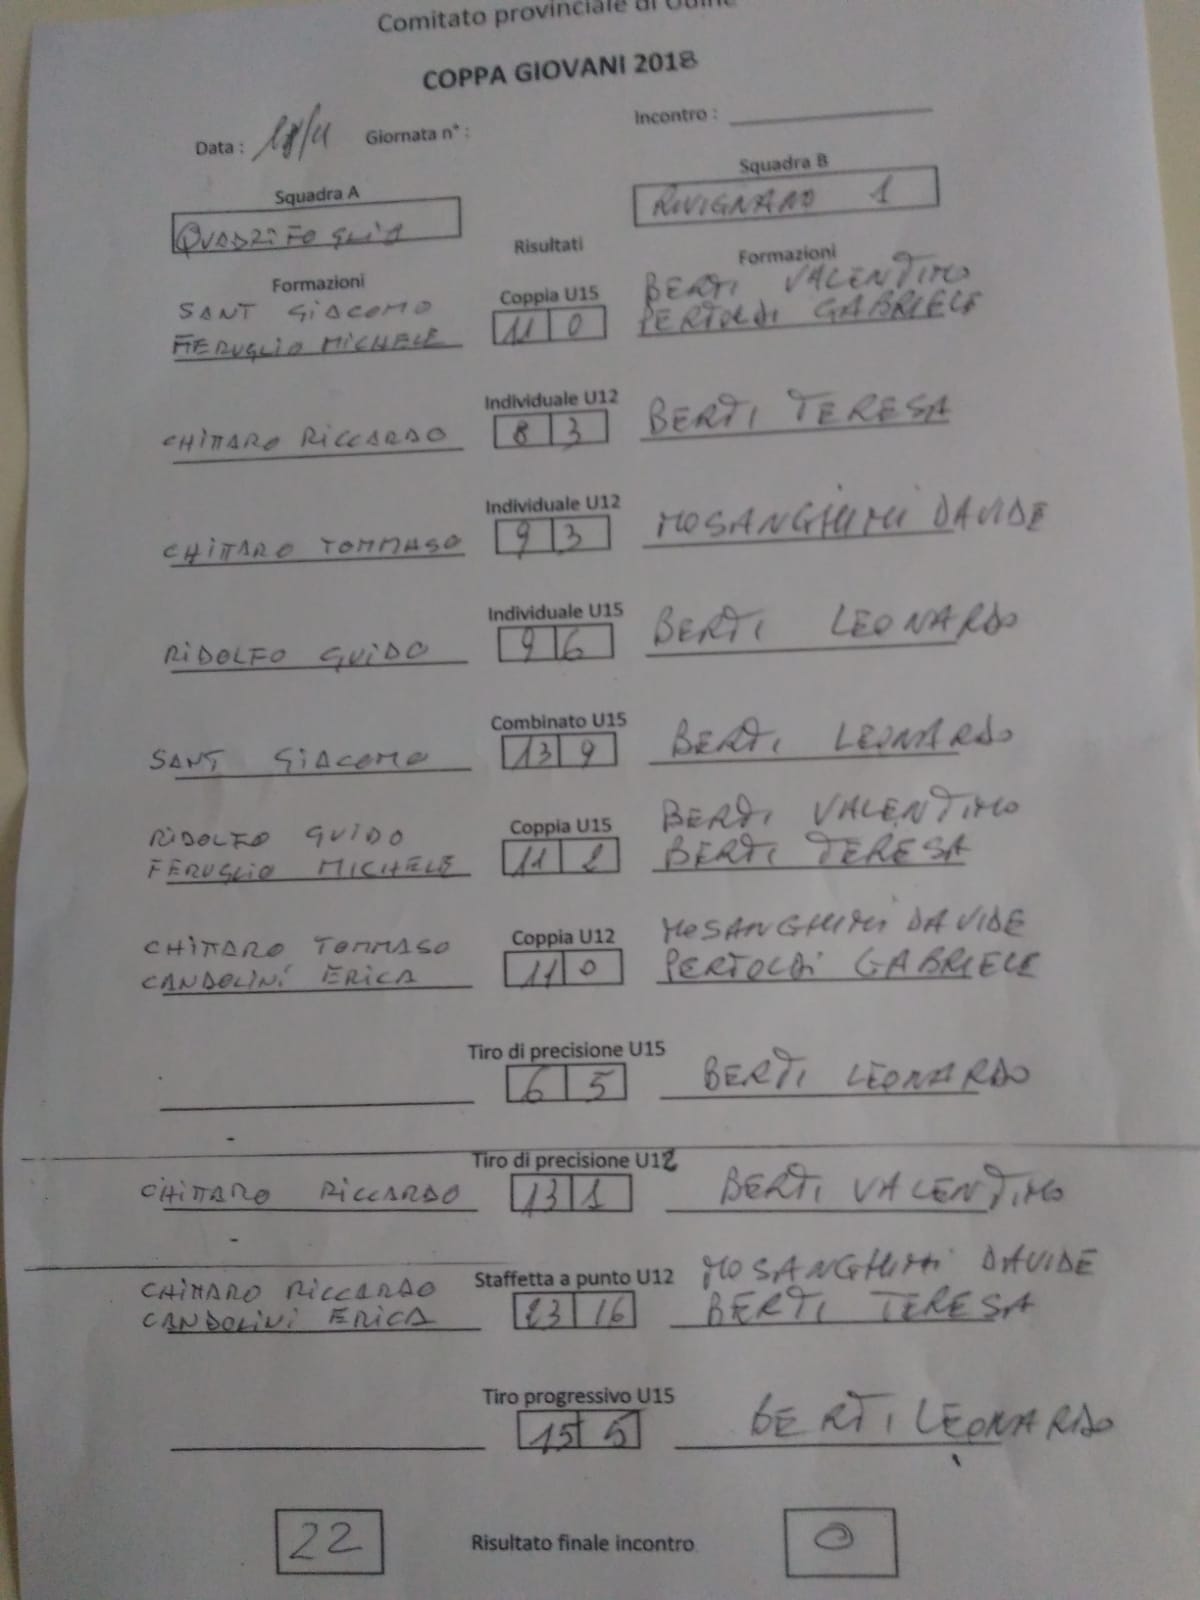 Comitato provinciale di Udine
COPPA GIOVANI 2018
Data : 18/11 Giornata n° : Incontro :
Squadra A Squadra B
QUADRIFOGLIO RIVIGNANO 1
Risultati
Formazioni Formazioni
SANT GIACOMO Coppia U15 BERTI VALENTINO
FERUGLIO MICHELE 11 0 PERTOLDI GABRIELE
Individuale U12
CHITTARO RICCARDO 8 3 BERTI TERESA
Individuale U12
CHITTARO TOMMASO 9 3 MOSANGHINI DAVIDE
Individuale U15
RIDOLFO GUIDO 9 6 BERTI LEONARDO
Combinato U15
SANT GIACOMO 13 9 BERTI LEONARDO
RIDOLFO GUIDO Coppia U15 BERTI VALENTINO
FERUGLIO MICHELE 11 2 BERTI TERESA
CHITTARO TOMMASO Coppia U12 MOSANGHINI DAVIDE
CANDOLINI ERICA 11 0 PERTOLDI GABRIELE
Tiro di precisione U15
6 5 BERTI LEONARDO
Tiro di precisione U12
CHITTARO RICCARDO 13 1 BERTI VALENTINO
CHITTARO RICCARDO Staffetta a punto U12 MOSANGHINI DAVIDE
CANDOLINI ERICA 23 16 BERTI TERESA
Tiro progressivo U15
15 5 BERTI LEONARDO
22 Risultato finale incontro 0